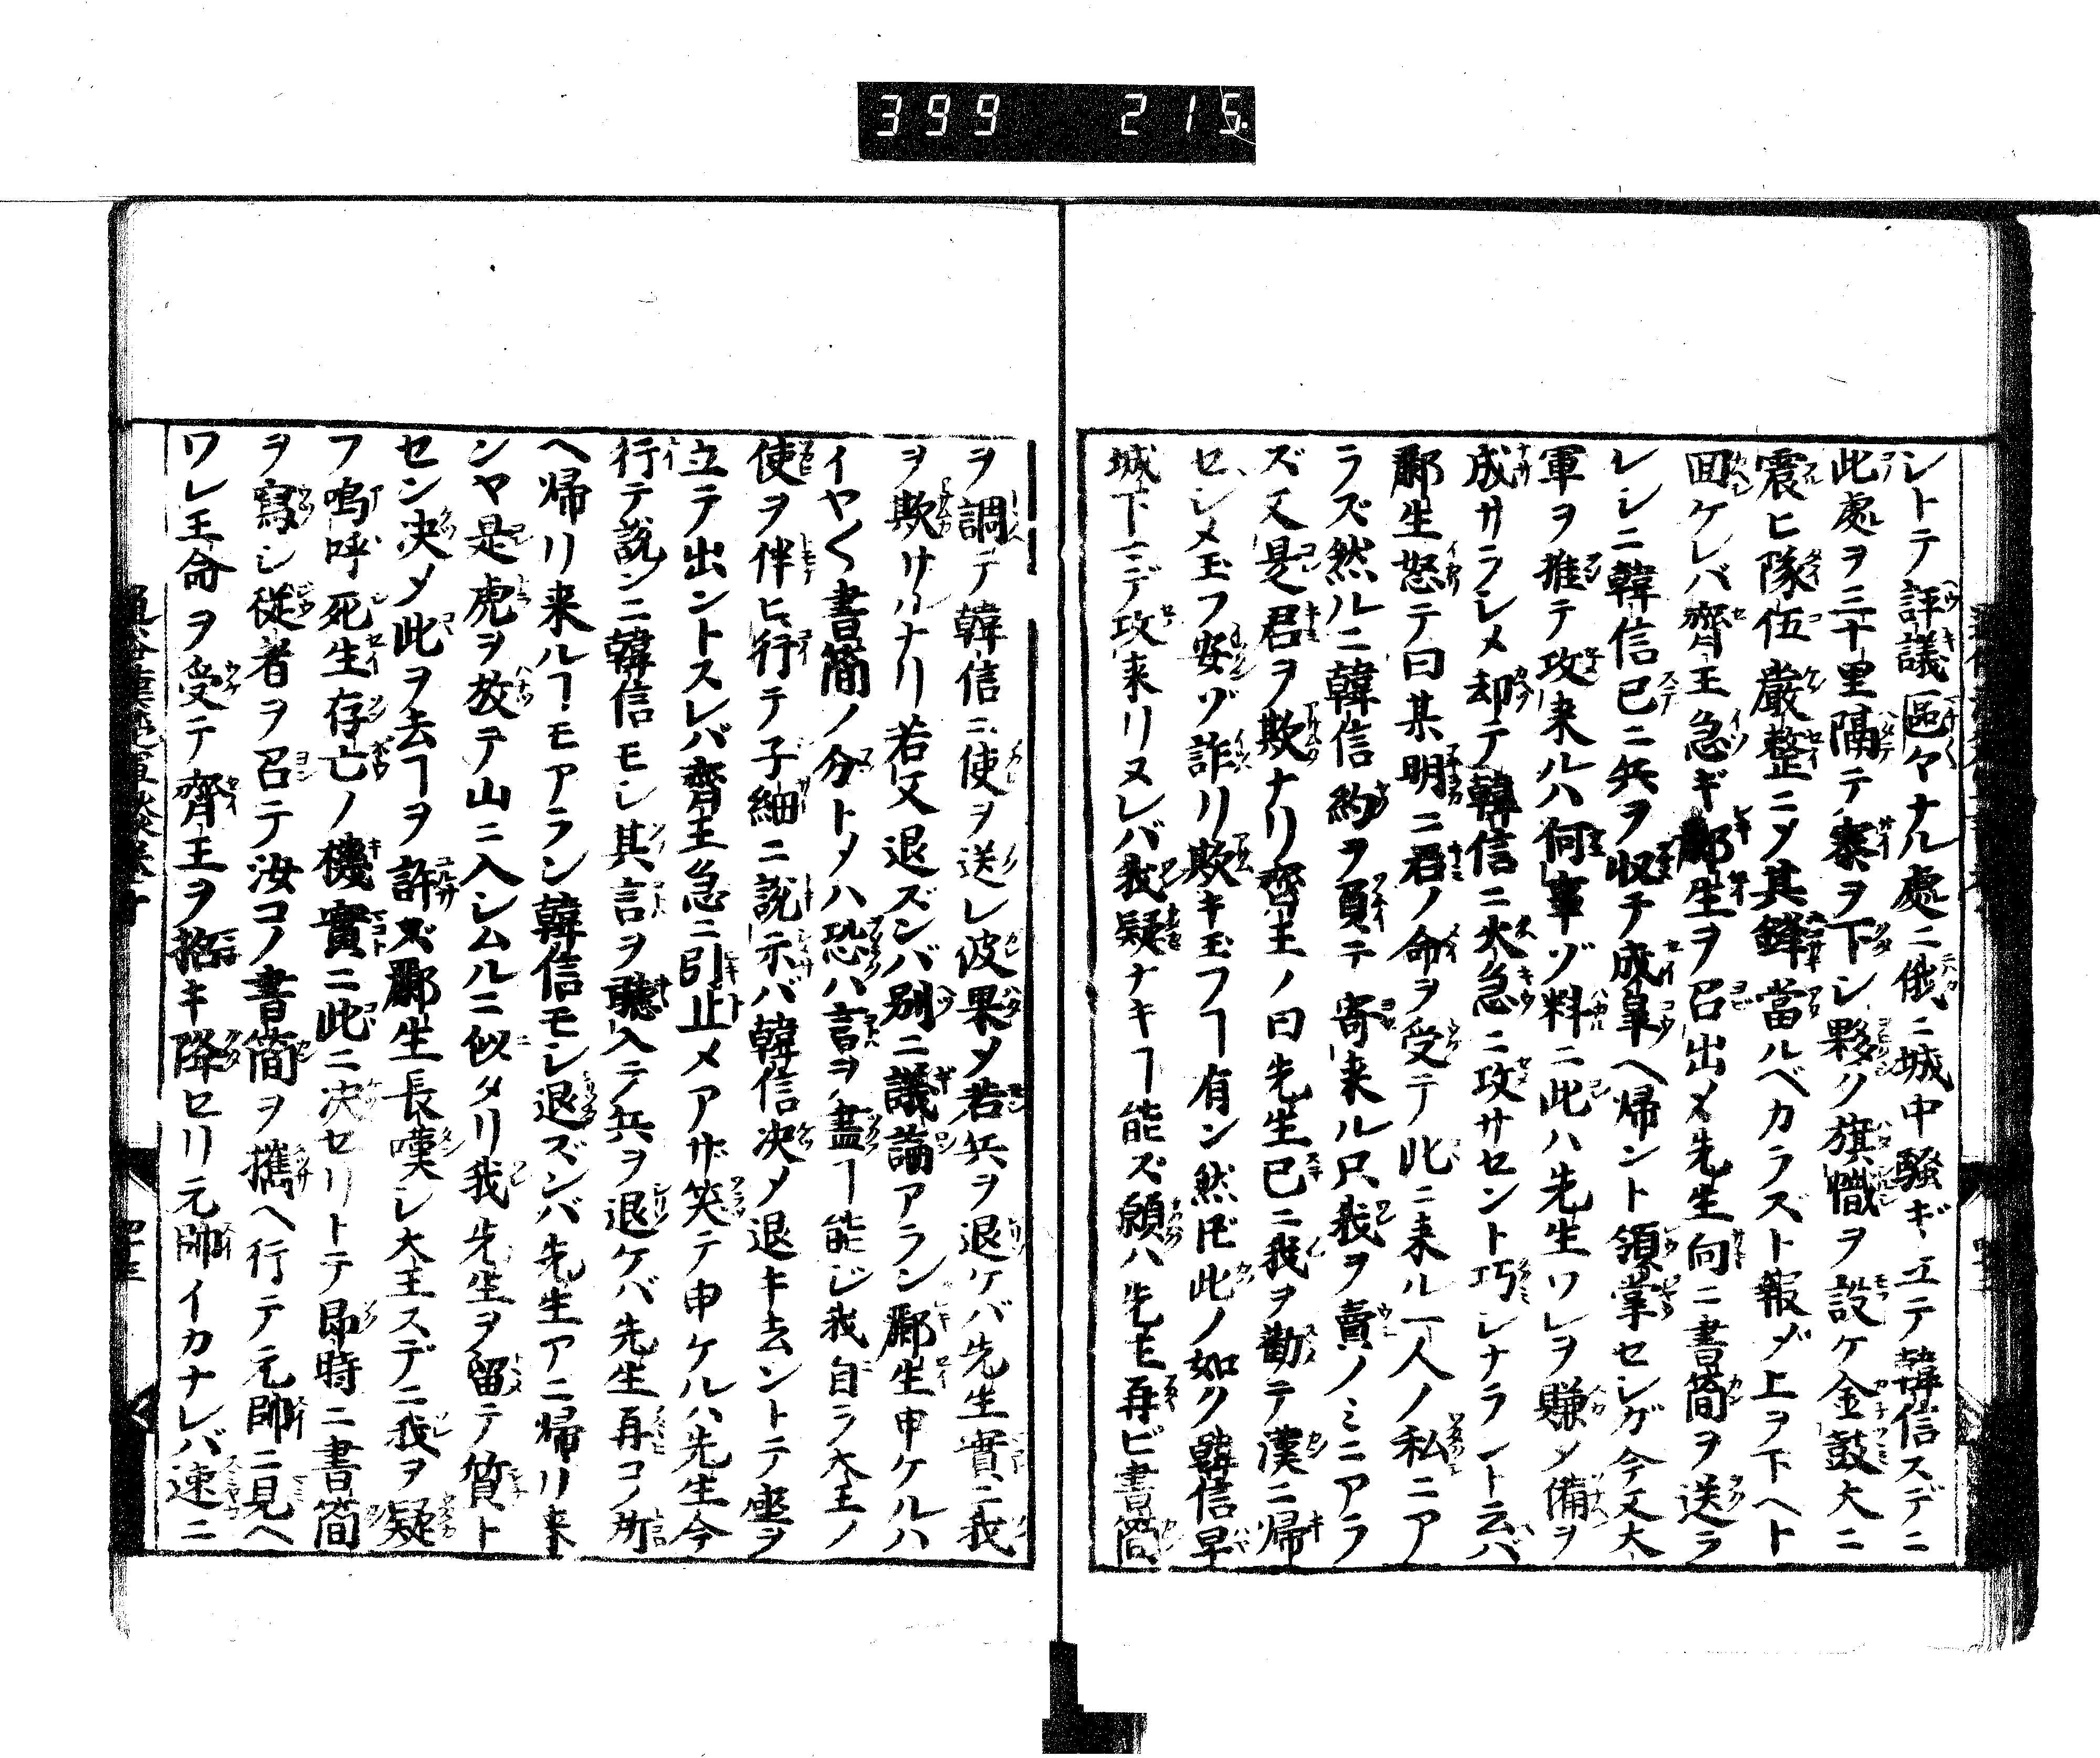 399 215
レトテ評議區々ナル處ニ俄ニ城中騒ギ立テ韓信スデニ
此處ヲ三十里隔テ寨ヲ下シ夥ク旗幟ヲ設ケ金鼓大ニ
震ヒ隊伍嚴整ニメ其鋒當ルベカラズト報ズ上ヲ下ヘト
囬ケレバ齊王急ギ酈生ヲ召出メ先生向ニ書簡ヲ送ラ
レシニ韓信已ニ兵ヲ収テ成皐ヘ帰ント領掌セシガ今又大
軍ヲ推テ攻来ルハ何事ゾ料ニ此ハ先生ワレヲ賺メ備ヲ
成サラシメ却テ韓信ニ火急ニ攻サセント巧シナラント云バ
酈生怒テ曰某明ニ君ノ命ヲ受テ此ニ来ル一人ノ私ニア
ラズ然ルニ韓信約ヲ負テ寄来ル只我ヲ賣ノミニアラ
ズ又是君ヲ欺ナリ齊王ノ曰先生已ニ我ヲ勸テ漢ニ帰
セシメ玉フ安ゾ詐リ欺キ玉フヿ有ン然𪜈此ノ如ク韓信早
城下マデ攻来リヌレバ我疑ナキヿ能ズ願ハ先生再ビ書簡
ヲ調テ韓信ニ使ヲ送レ彼果メ若兵ヲ退ケバ先生實ニ我
ヲ欺サルナリ若又退ズンバ別ニ議論アラン酈生申ケルハ
イヤ〱書簡ノ分トメハ恐ハ言ヲ盡ヿ能ジ我自ラ大王ノ
使ヲ伴ヒ行テ子細ニ説示バ韓信决メ退キ去ントテ座ヲ
立テ出ントスレバ齊王急ニ引止メアザ笑テ申ケルハ先生今
行テ説ンニ韓信モシ其言ヲ聽入テ兵ヲ退ケバ先生再コノ所
ヘ帰リ来ルヿモアラン韓信モシ退ズンバ先生アニ帰リ来
ンヤ是虎ヲ放テ山ニ入シムルニ似タリ我先生ヲ留テ質ト
セン决メ此ヲ去ヿヲ許ズ酈生長嘆シ大王スデニ我ヲ疑
フ嗚呼死生存亡ノ機實ニ此ニ决セリトテ昂時ニ書簡
ヲ寫シ従者ヲ召テ汝コノ書簡ヲ攜ヘ行テ元帥ニ見ヘ
ワレ王命ヲ受テ齊王ヲ招キ降セリ元帥イカナレバ速ニ